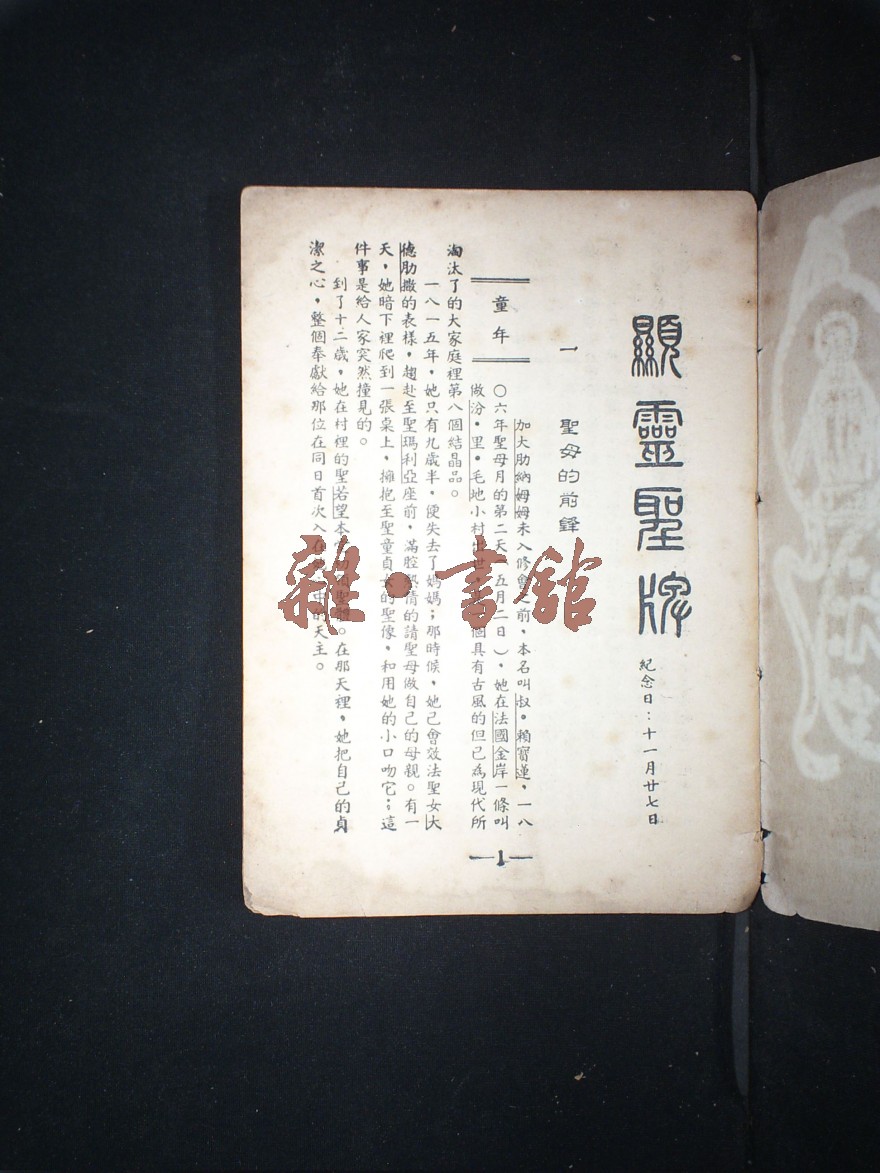 顯靈聖牌
紀念日：十一月廿七日
一　聖母的前鋒
童年
加大肋納姆姆未入修會之前，本名叫叔·賴寶蓮，一八
〇六年聖母月的第二天（五月二日），她在法國金岸一條叫
做汾·里·毛地小村出世，個具有古風的但已為現代所
淘汰了的大家庭裡第八個結晶品。
一八一五年，她只有九歲半，便失去了媽媽；那時候，她已會效法聖女大
德肋撒的表樣，趨赴至聖瑪利亞座前，滿腔熱情的請聖母做自己的母親。有一
天，她暗下裡爬到一張桌上，擁抱至聖童貞女的聖像，和用她的小口吻它；這
件事是給人家突然撞見的。
到了十二歲，她在村裡的聖若望本聖體。在那天裡，她把自己的貞
潔之心，整個奉獻給那位在同日首次入在中的天主。
—1—
雜·書館